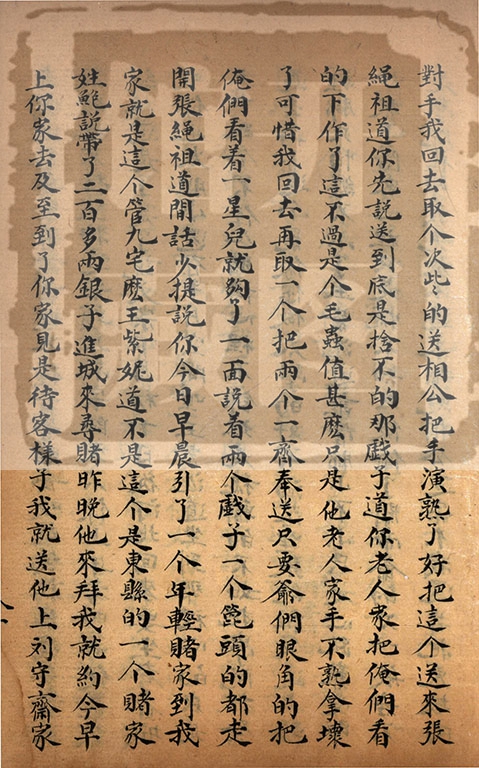 對手我回去取个次些的送相公把手演熟了好把這个送來張
繩祖道你先說送到底是捨不的那戲子道你老人家把俺們看
的下作了這不過是个毛蟲值甚麽只是他老人家手不熟拿壞
了可惜我回去再取一个把兩个一齊奉送只要爺們眼角的把
俺們看着一星兒就夠了一面說着兩个戲子一个箆頭的都走
開張繩祖道閒話少提說你今日早晨引了一个年輕賭家到我
家就是這个管九宅麽王紫妮道不是這个是東縣的一个賭家
姓鮑說帶了二百多兩銀子進城來尋賭昨晚他來拜我就約今早
上你家去及至到了你家見是待客樣子我就送他上刘守齋家